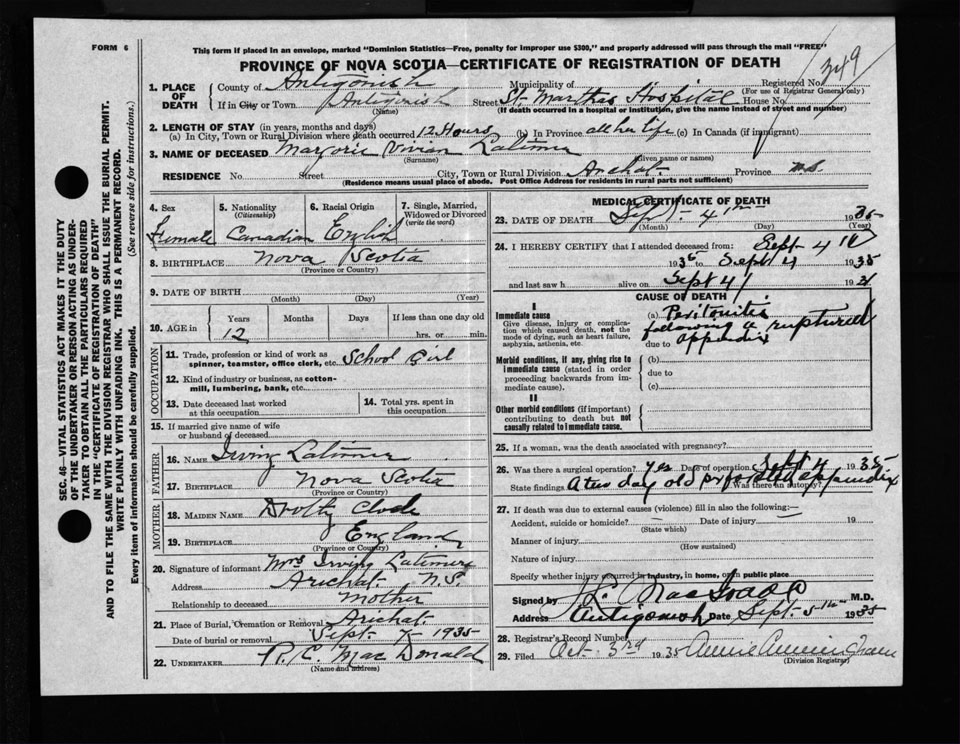 FORM 6
This form if placed in an envelope, marked "Dominion Statistics—Free, penalty for improper use $300," and properly addressed will pass through the mail "FREE"
PROVINCE OF NOVA SCOTIA—CERTIFICATE OF REGISTRATION OF DEATH
349
1. PLACE OF DEATH
County of Antigonish Municipality of Registered No.
(For use of Registrar General only)
If in City or Town Antigonish Street St. Marthas Hospital House No.
(Name) (If death occurred in a hospital or institution, give the name instead of street and number)
2. LENGTH OF STAY (in years, months and days)
(a) In City, Town or Rural Division where death occurred 12 Hours (b) In Province all her life (c) In Canada (if immigrant)
3. NAME OF DECEASED Marjorie Vivian Latimer
(Surname) (Given name or names)
RESIDENCE No. Street City, Town or Rural Division Arichat Province N.S.
(Residence means usual place of abode. Post Office Address for residents in rural parts not sufficient)
SEC. 46—VITAL STATISTICS ACT MAKES IT THE DUTY
OF THE UNDERTAKER OR PERSON ACTING AS UNDER-
TAKER TO OBTAIN ALL THE PARTICULARS REQUIRED
IN THE "CERTIFICATE OF REGISTRATION OF DEATH"
AND TO FILE THE SAME WITH THE DIVISION REGISTRAR WHO SHALL ISSUE THE BURIAL PERMIT.
WRITE PLAINLY WITH UNFADING INK. THIS IS A PERMANENT RECORD.
Every item of information should be carefully supplied. (See reverse side for instructions.)
4. Sex 5. Nationality (Citizenship) 6. Racial Origin 7. Single, Married, Widowed or Divorced (write the word)
Female Canadian English
8. BIRTHPLACE Nova Scotia
(Province or Country)
9. DATE OF BIRTH
(Month) (Day) (Year)
10. AGE in Years Months Days If less than one day old
12 hrs. or min.
OCCUPATION
11. Trade, profession or kind of work as spinner, teamster, office clerk, etc. School Girl
12. Kind of industry or business, as cotton-mill, lumbering, bank, etc.
13. Date deceased last worked at this occupation 14. Total yrs. spent in this occupation
15. If married give name of wife or husband of deceased
FATHER
16. NAME Irving Latimer
17. BIRTHPLACE Nova Scotia
(Province or Country)
MOTHER
18. MAIDEN NAME
19. BIRTHPLACE England
(Province or Country)
20. Signature of informant Mrs Irving Latimer
Address Arichat N.S.
Relationship to deceased Mother
21. Place of Burial, Cremation or Removal Arichat
Date of burial or removal Sept. 7 - 1935
22. UNDERTAKER R. C. MacDonald
(Name and address)
MEDICAL CERTIFICATE OF DEATH
23. DATE OF DEATH Sept - 4th 1935
(Month) (Day) (Year)
24. I HEREBY CERTIFY that I attended deceased from: Sept 4
1935 to Sept 4 1935
and last saw h alive on Sept 4 193
CAUSE OF DEATH
I
Immediate cause
Give disease, injury or complication which caused death, not the mode of dying, such as heart failure, asphyxia, asthenia, etc.
(a) Peritonitis
following a ruptured
due to appendix
Morbid conditions, if any, giving rise to immediate cause (stated in order proceeding backwards from immediate cause).
(b)
due to
(c)
II
Other morbid conditions (if important) contributing to death but not causally related to immediate cause.
25. If a woman, was the death associated with pregnancy?
26. Was there a surgical operation? yes Date of operation Sept 4 1935
State findings day old appendix Was there an autopsy?
27. If death was due to external causes (violence) fill in also the following:—
Accident, suicide or homicide? Date of injury 19
(State which)
Manner of injury
(How sustained)
Nature of injury
Specify whether injury occurred in industry, in home, or in public place
Signed by M.D.
Address Antigonish Date Sept. 5th 1935
28. Registrar's Record Number
29. Filed Oct. 3rd 1935 Annie
(Division Registrar)